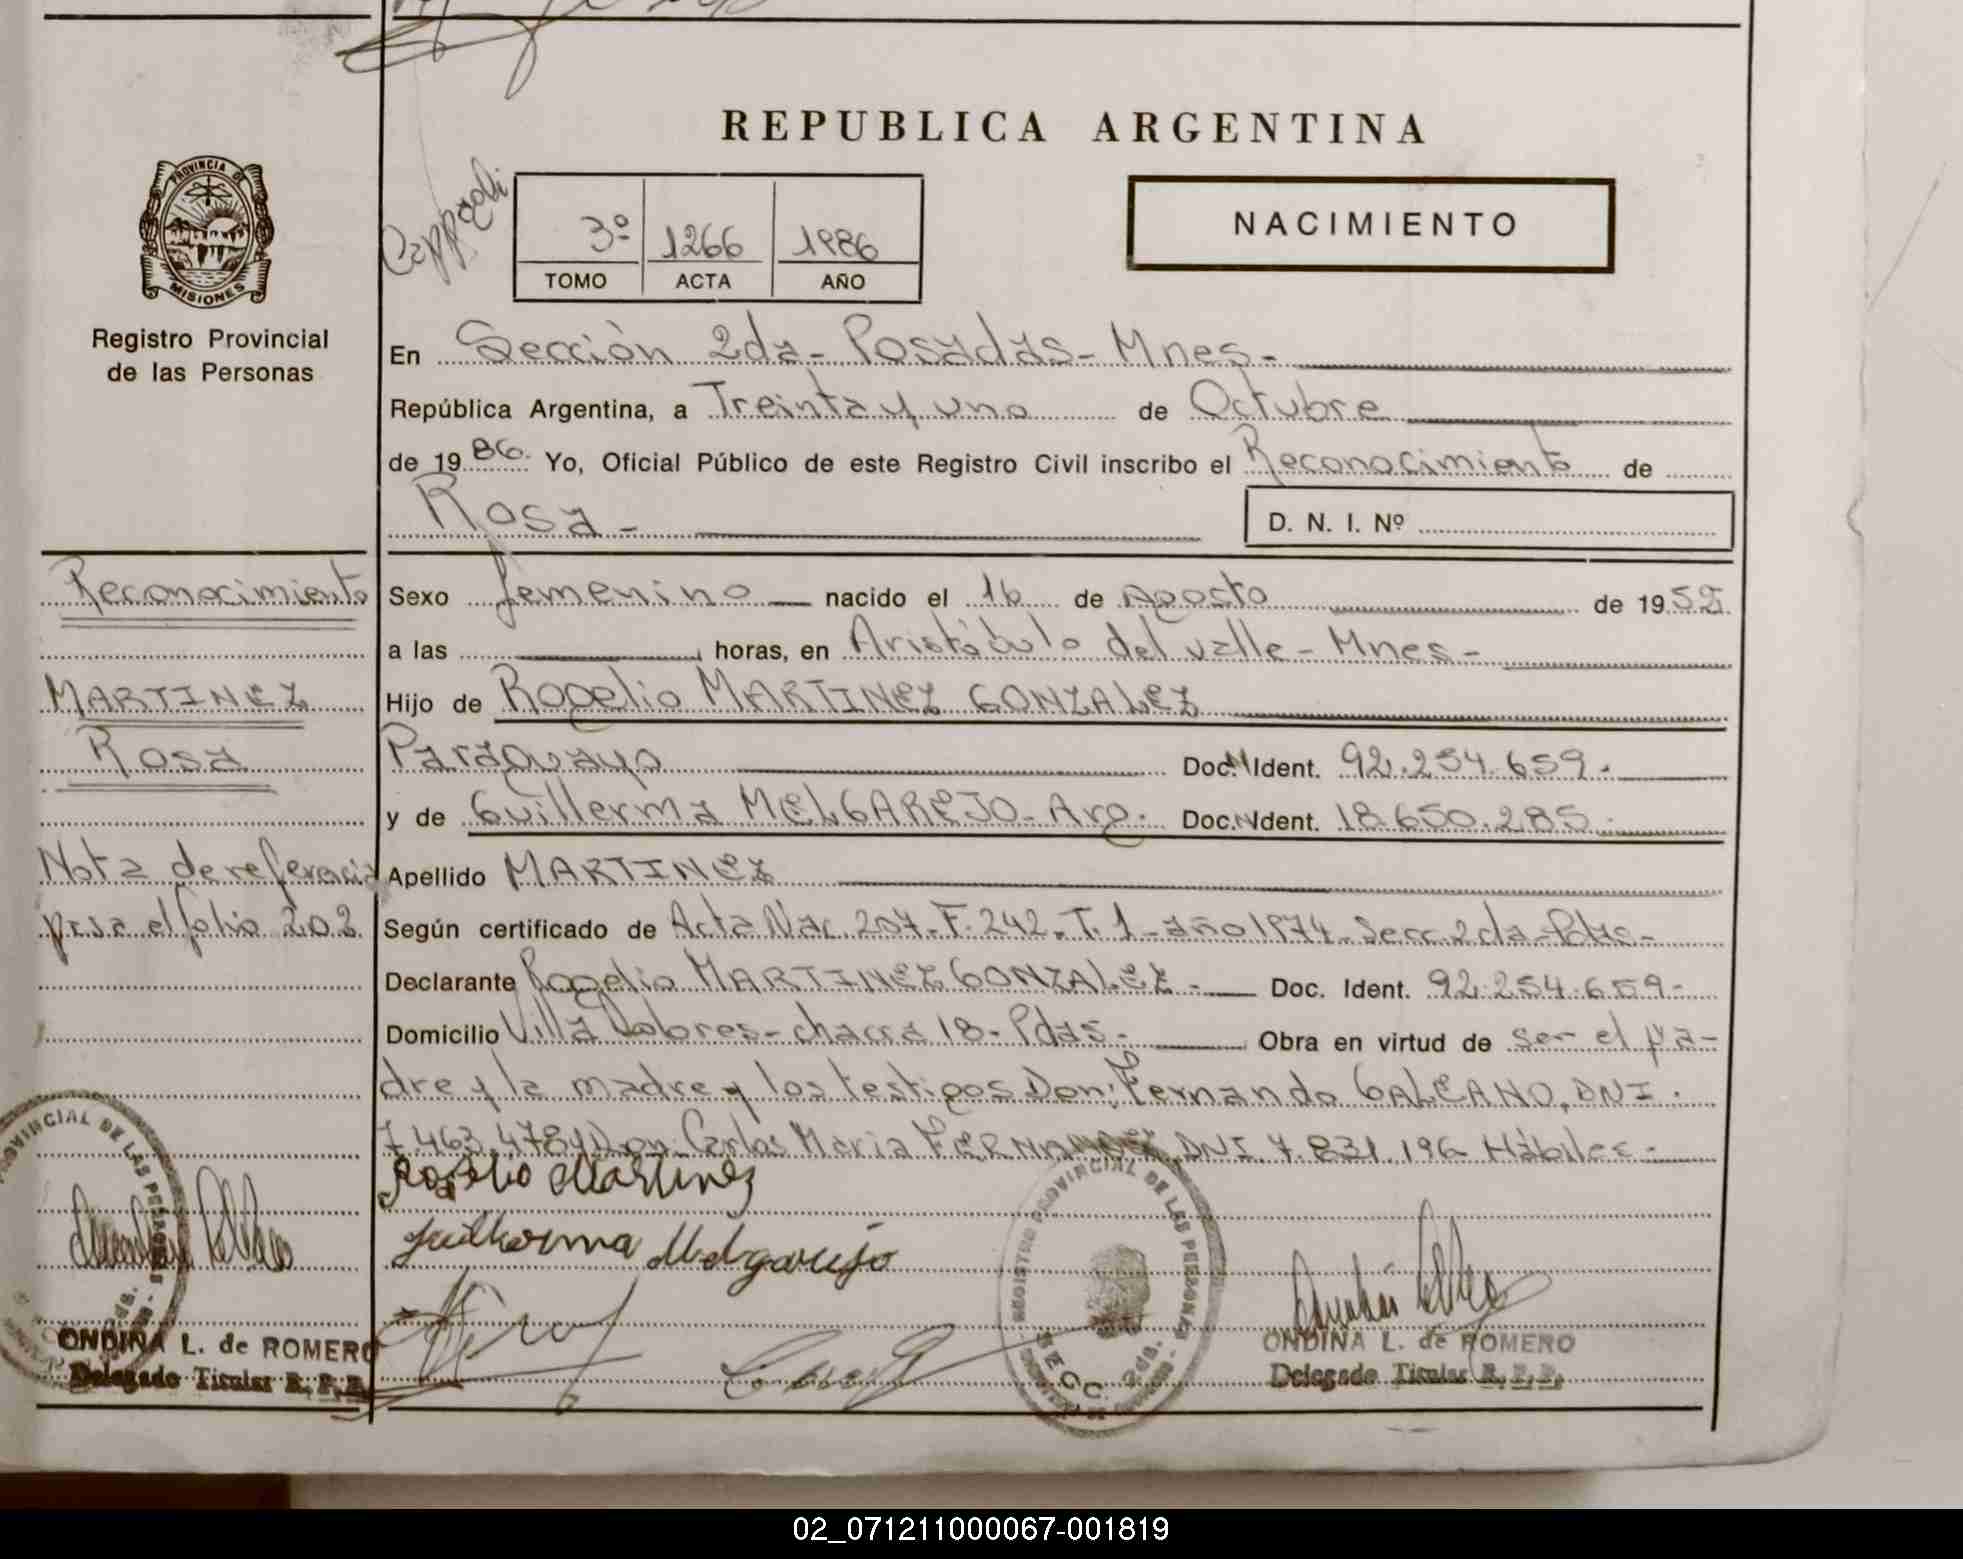 REPUBLICA ARGENTINA
PROVINCIA DE
MISIONES
Registro Provincial
de las Personas
3º 1266 1986
TOMO ACTA AÑO
NACIMIENTO
En Sección 2da- Posadas- Mnes-
República Argentina, a Treinta y uno de Octubre
de 1986. Yo, Oficial Público de este Registro Civil inscribo el Reconocimiento de
Rosa-
D. N. I. Nº
Reconocimiento
MARTINEZ
Rosa
Nota de referencia
pasa el folio 202
Sexo femenino nacido el 16 de Agosto de 195
a las horas, en Aristóbulo del valle- Mnes-
Hijo de Rogelio MARTINEZ GONZALEZ
Paraguayo Doc. Ident. 92.254.659.
y de Guillerma MELGAREJO- Arg. Doc. Ident. 18.650.285.
Apellido MARTINEZ
Según certificado de Acta Nac. 207- F. 242- T. 1- año 1974- Secc 2da- Pdas-
Declarante Rogelio MARTINEZ GONZALEZ- Doc. Ident. 92.254.659-
Domicilio Villa Dolores- chacra 18- Pdas- Obra en virtud de ser el pa-
dre y la madre y los testigos Don: Fernando GALEANO, DNI.
7.463.478 y Don Carlos Maria DNI. 7.831.196 Hábiles-
Rogelio Martinez
Guilherma Melgarejo
REGISTRO PROVINCIAL DE LAS PERSONAS
SECC. 2da.
ONDINA L. de ROMERO
Delegado Titular R. P. P.
PROVINCIAL DE LAS PERSONAS
ONDINA L. de ROMERO
Delegado Titular R. P. P.
02_071211000067-001819